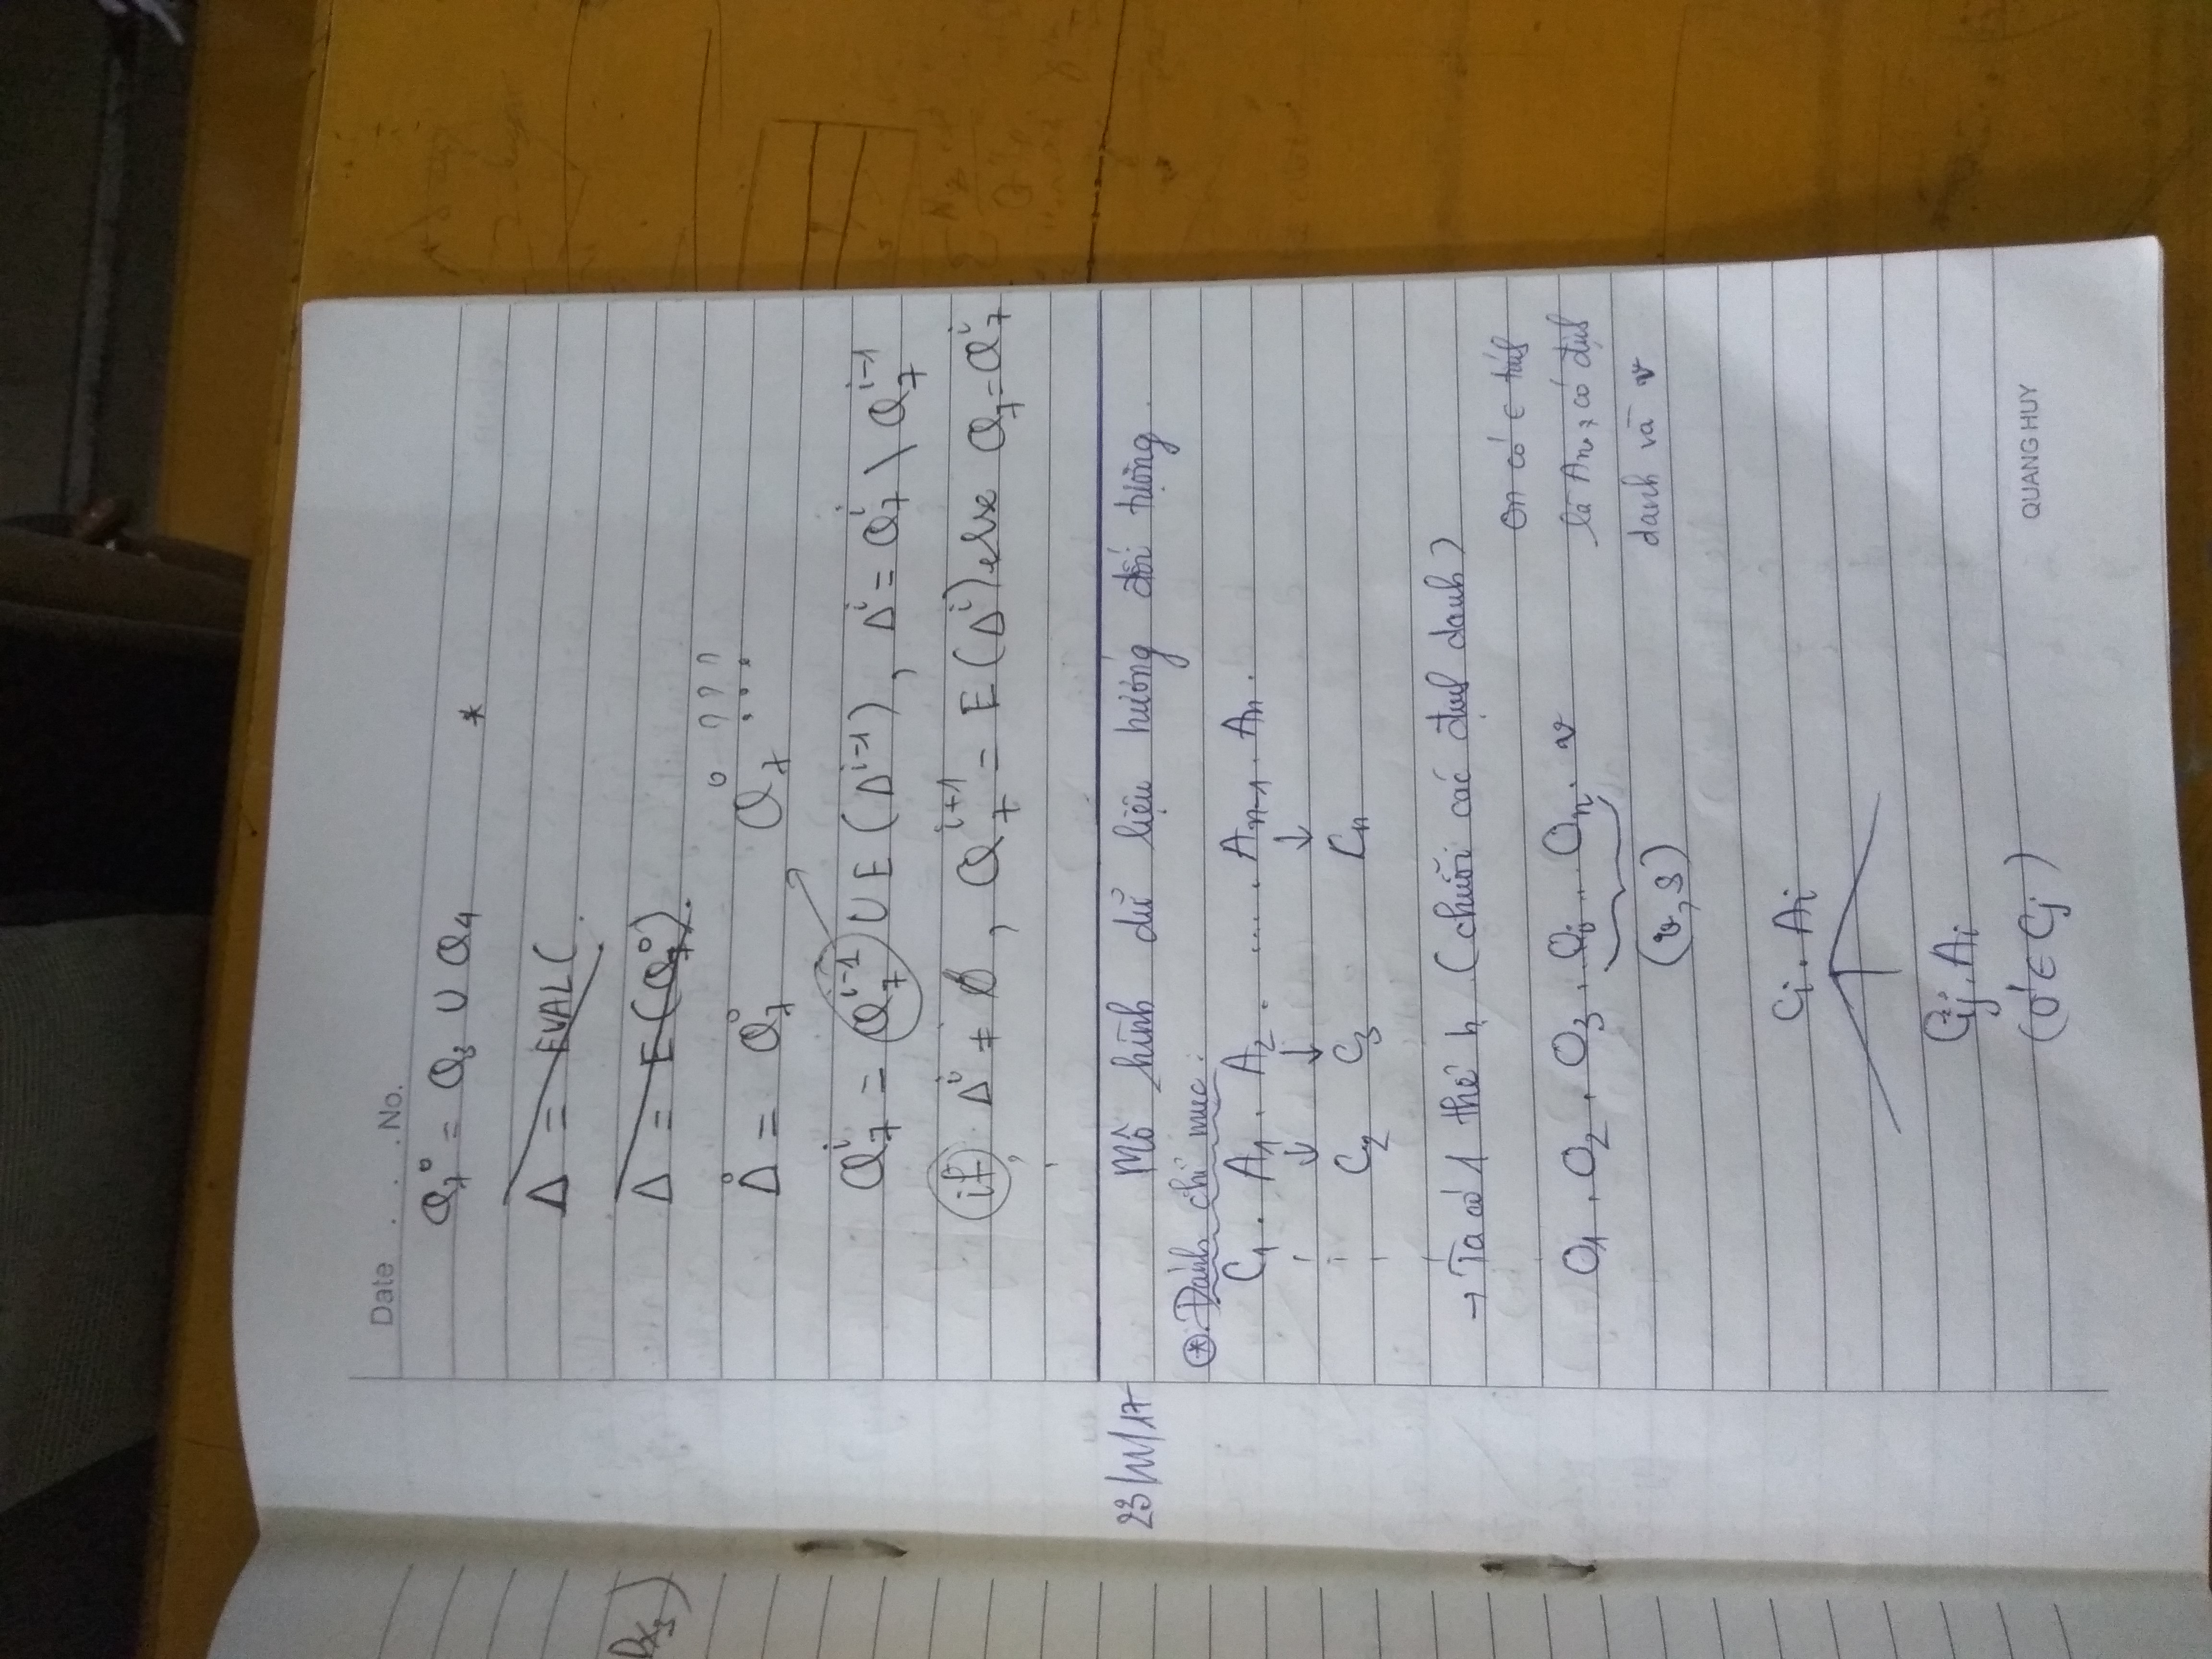 Date . . . No.
Q₇⁰ = Q₃ ∪ Q₄ *
Δ = EVAL(
Δ = E(Q₇⁰).
Δ⁰ = Q₇⁰ Q₇⁰ ???
Q₇ⁱ = Q₇ⁱ⁻¹ ∪ E(Δⁱ⁻¹), Δⁱ = Q₇ⁱ \ Q₇ⁱ⁻¹
if Δⁱ ≠ ∅, Q₇ⁱ⁺¹ = E(Δⁱ) else Q₇ = Q₇ⁱ
23/11/17 Mô hình dữ liệu hướng đối tượng.
⊛. Đánh chỉ mục:
C₁. A₁. A₂. ..... Aₙ₋₁. Aₙ.
↓ ↓ ↓
C₂ C₃ Cₙ
→ Ta có 1 thể h (chuỗi các định danh)
On có t tính
O₁. O₂. O₃. Oᵢ... Oₙ. v
là An, có định
danh và v
(v, s)
Cᵢ. Aᵢ
Cᵢⱼ. Aᵢ
(O' ∈ Cⱼ)
QUANG HUY